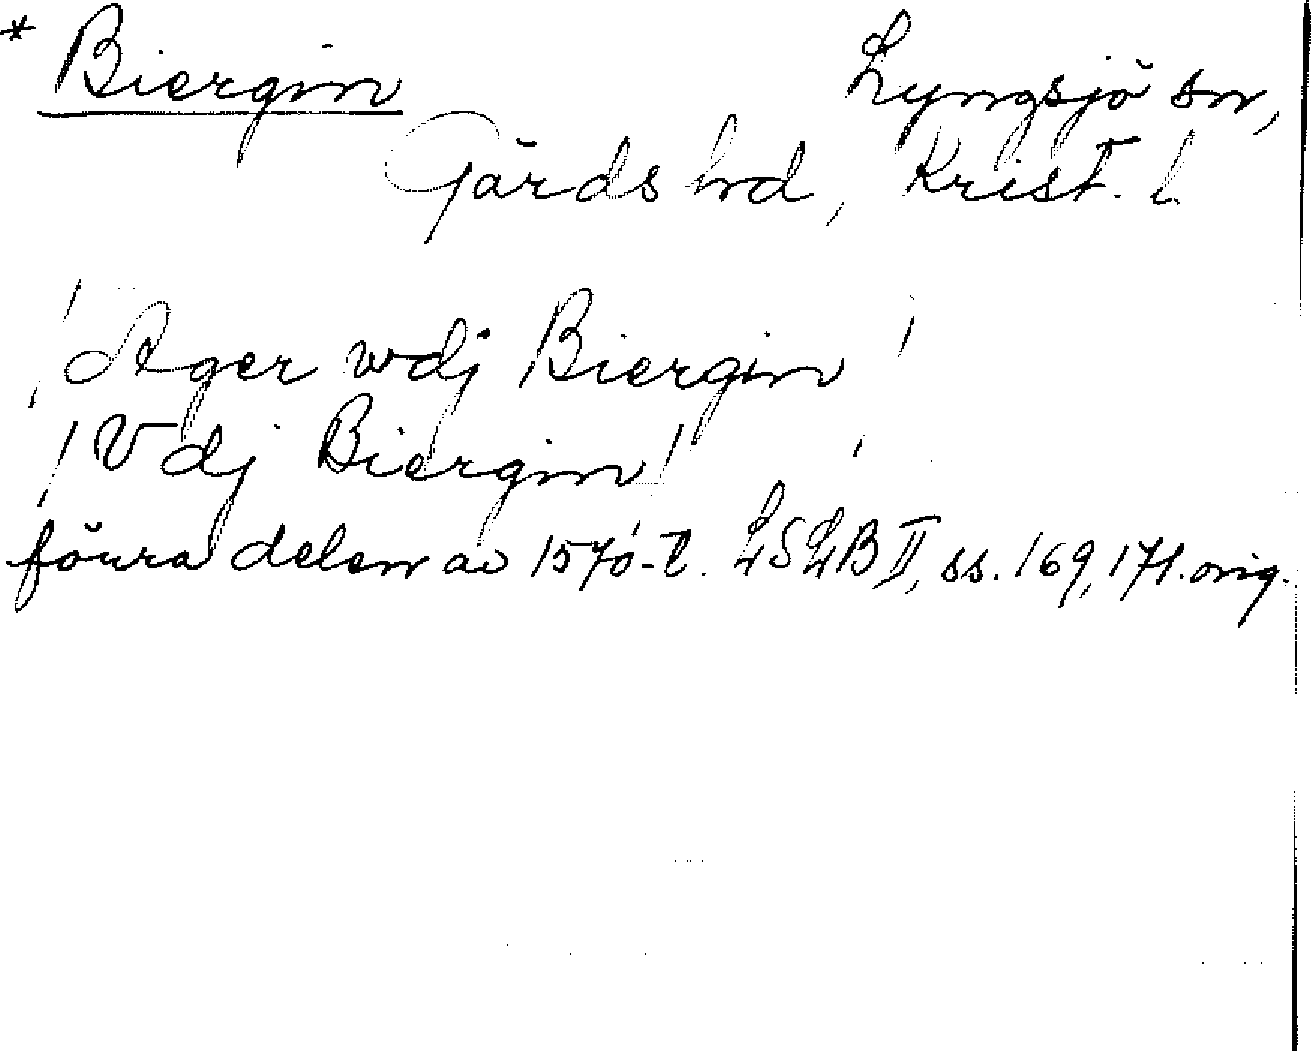 * Biergin Lyngsjö sn,
Gärds hd, Krist. l.
/Ager wdj Biergin/
/Vdj Biergin/
förra delen av 1570-t. LSLB II, ss. 169, 171. orig.